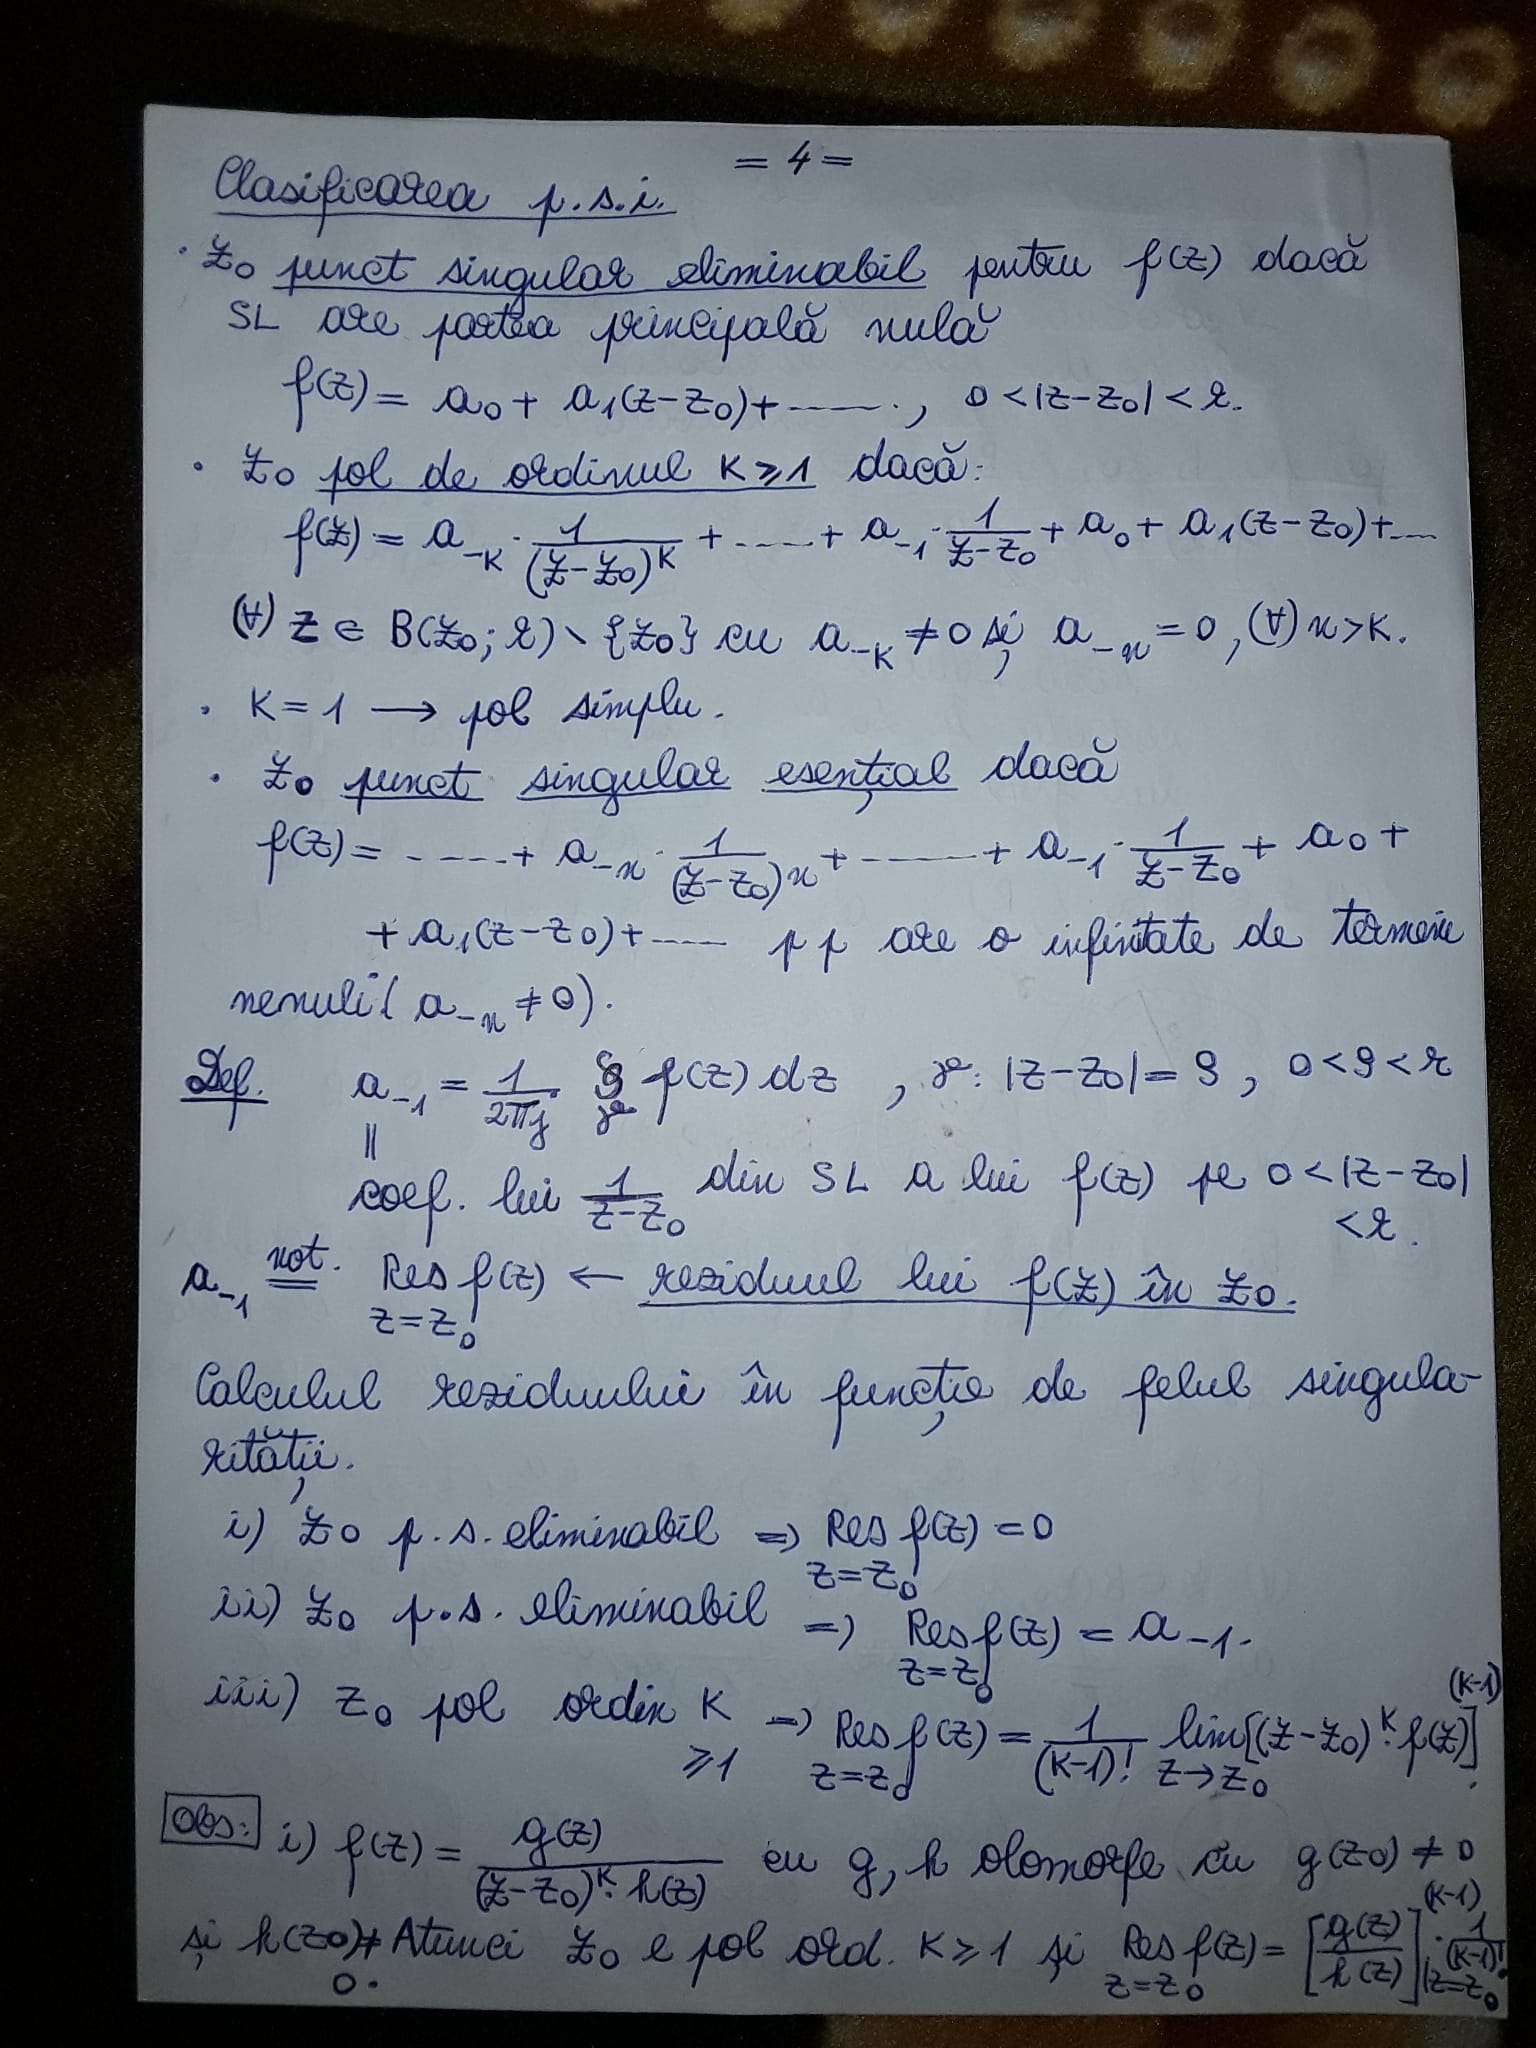 = 4 =
Clasificarea p.s.i.
· z₀ punct singular eliminabil pentru f(z) dacă
SL are partea principală nulă
f(z) = a₀ + a₁(z-z₀)+ ......, 0<|z-z₀|<r.
· z₀ pol de ordinul K⩾1 dacă:
f(z) = a₋ₖ · 1/(z-z₀)^K + ..... + a₋₁ · 1/(z-z₀) + a₀ + a₁(z-z₀)+....
(∀) z ∈ B(z₀; r) \ {z₀} cu a₋ₖ ≠ 0 și a₋ₙ = 0, (∀) n>K.
· K = 1 → pol simplu.
· z₀ punct singular esențial dacă
f(z) = ......+ a₋ₙ · 1/(z-z₀)^n + ......+ a₋₁ · 1/(z-z₀) + a₀ +
+ a₁(z-z₀)+ ..... pp are o infinitate de termeni
nenuli (a₋ₙ ≠ 0).
Def. a₋₁ = 1/(2πj) ∮_γ f(z) dz , γ: |z-z₀| = ρ, 0<ρ<r
||
coef. lui 1/(z-z₀) din SL a lui f(z) pe 0<|z-z₀|
<r.
a₋₁ =(not.) Res_{z=z₀} f(z) ← reziduul lui f(z) în z₀.
Calculul reziduului în funcție de felul singula-
rității.
i) z₀ p.s. eliminabil ⇒ Res_{z=z₀} f(z) = 0
ii) z₀ p.s. eliminabil ⇒ Res_{z=z₀} f(z) = a₋₁.
iii) z₀ pol ordin K ⩾1 ⇒ Res_{z=z₀} f(z) = 1/(K-1)! lim_{z→z₀} [(z-z₀)^K · f(z)]^(K-1).
Obs: i) f(z) = g(z)/((z-z₀)^K · h(z)) cu g, h olomorfe cu g(z₀) ≠ 0
și h(z₀)≠0. Atunci z₀ e pol ord. K⩾1 și Res_{z=z₀} f(z) = [g(z)/h(z)]^(K-1)|_{z=z₀} · 1/(K-1)!